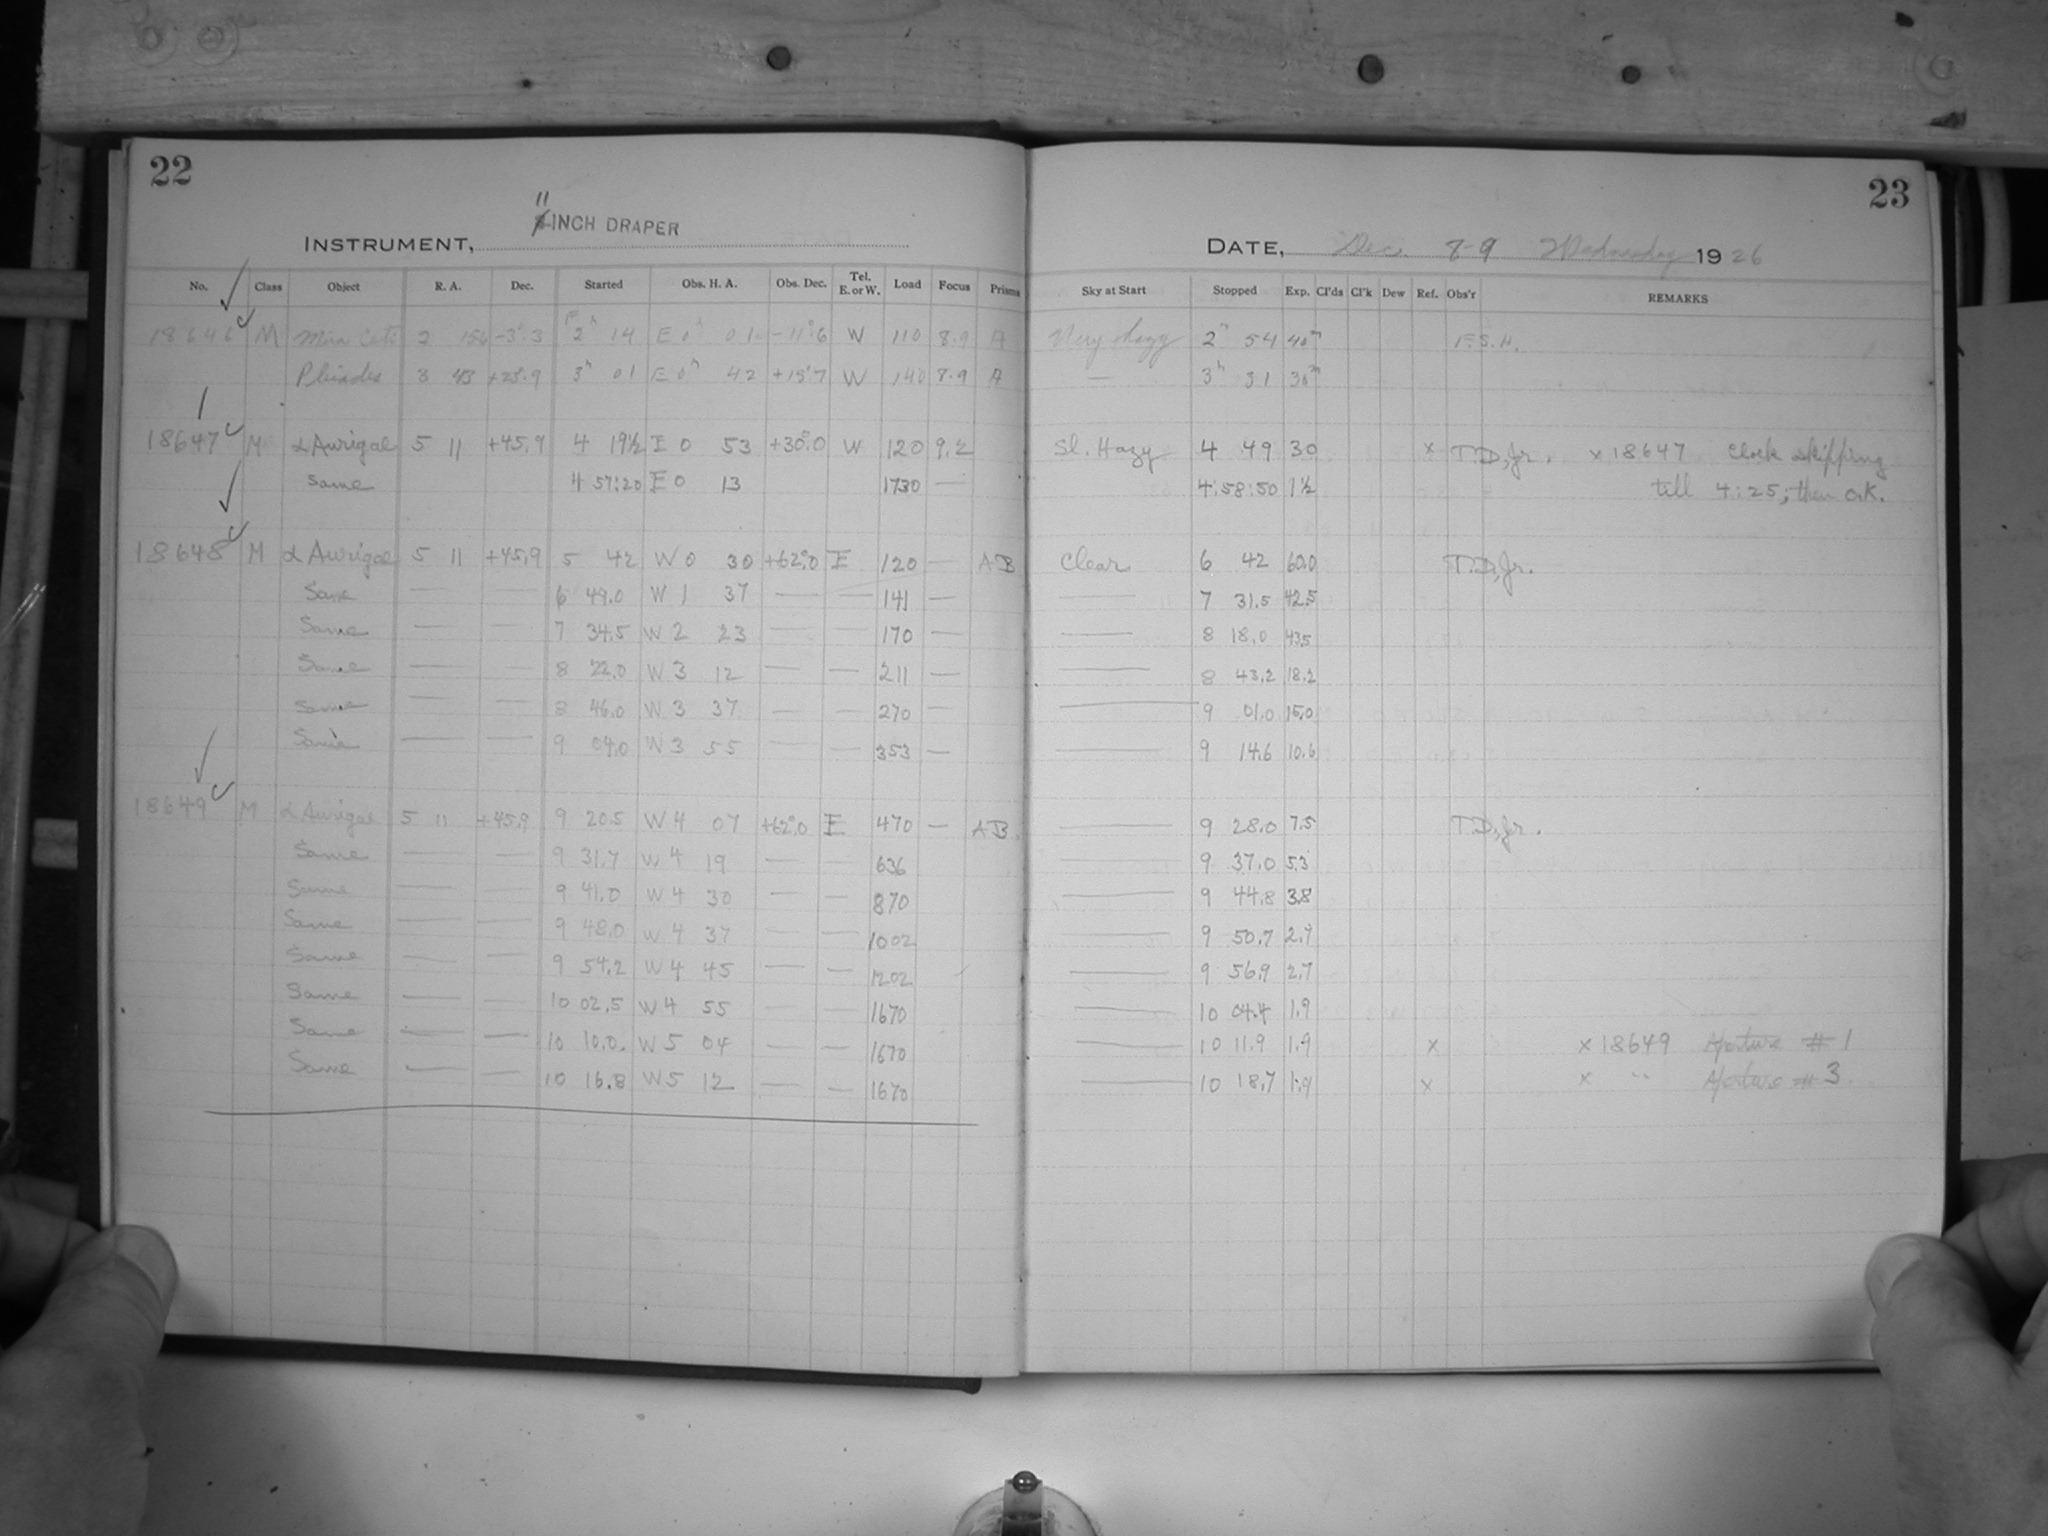 22
11
INCH DRAPER
INSTRUMENT,
No. Class Object R. A. Dec. Started Obs. H. A. Obs. Dec. Tel. E. or W. Load Focus Prisms
18646 M Mira Ceti 2 156 -3°.3 2h 14 E 0h 01 -11°.6 W 110 8.9 A
Pleiades 3 43 +23.9 3h 01 E 0h 42 +15°.7 W 140 8.9 A
18647 M α Aurigae 5 11 +45.9 4 19½ E 0 53 +30°.0 W 120 9.2
Same 4 57:20 E 0 13 1730 —
18648 M α Aurigae 5 11 +45.9 5 42 W 0 30 +62°.0 E 120 — AB
Same — — 6 49.0 W 1 37 — — 141 —
Same — — 7 34.5 W 2 23 — — 170 —
Same — — 8 22.0 W 3 12 — — 211 —
Same — — 8 46.0 W 3 37 — — 270 —
Same — — 9 04.0 W 3 55 — — 353 —
18649 M α Aurigae 5 11 +45.9 9 20.5 W 4 07 +62°.0 E 470 — AB.
Same — — 9 31.7 W 4 19 — — 636
Same — — 9 41.0 W 4 30 — — 870
Same — — 9 48.0 W 4 37 — — 1002
Same — — 9 54.2 W 4 45 — — 1202
Same — — 10 02.5 W 4 55 — — 1670
Same — — 10 10.0 W 5 04 — — 1670
Same — — 10 16.8 W 5 12 — — 1670
23
DATE, Dec. 8-9 Wednesday 1926
Sky at Start Stopped Exp. Cl'ds Cl'k Dew Ref. Obs'r REMARKS
Very hazy 2h 54 40m F.S.H.
— 3h 31 30m
Sl. Hazy 4 49 30 x T.D,Jr. x 18647 Clock skipping
4:58:50 1½ till 4:25; then O.K.
Clear 6 42 60.0 T.D,Jr.
— 7 31.5 42.5
— 8 18.0 43.5
— 8 43.2 18.2
— 9 01.0 15.0
— 9 14.6 10.6
— 9 28.0 7.5 T.D,Jr.
— 9 37.0 5.3
— 9 44.8 3.8
— 9 50.7 2.7
— 9 56.9 2.7
— 10 04.4 1.9
— 10 11.9 1.9 x x 18649 Aperture #1
— 10 18.7 1.9 x x " Aperture #3